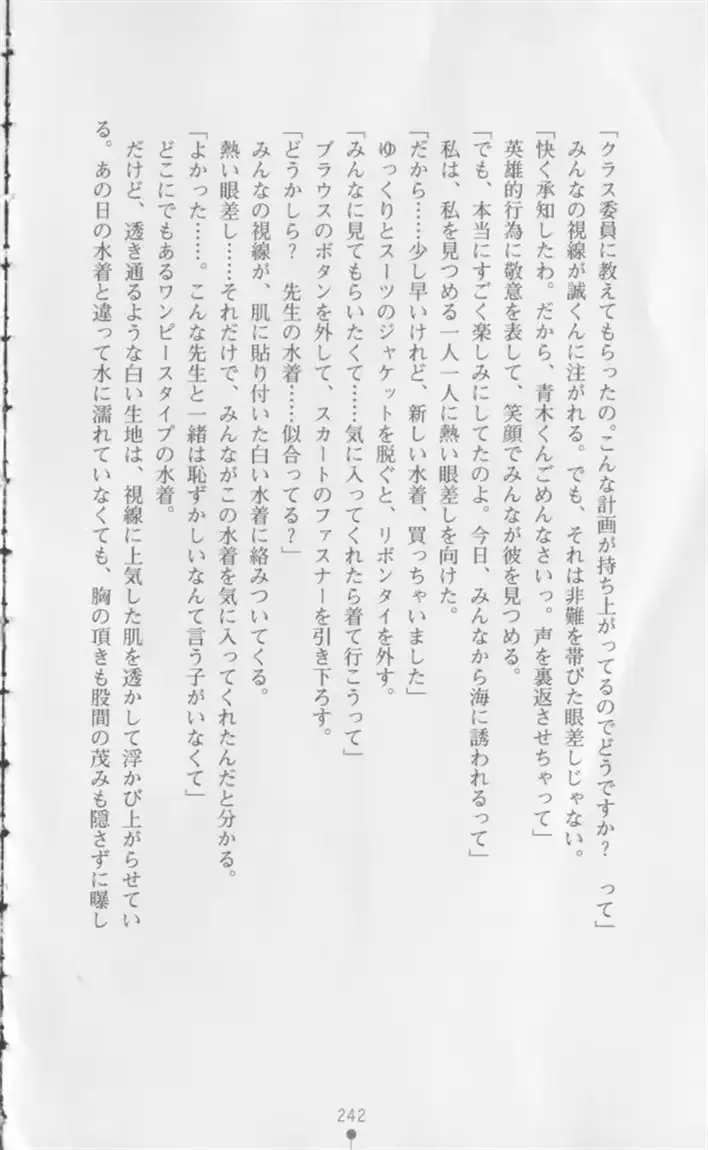 「クラス委員に教えてもらったの。こんな計画が持ち上がってるのでどうですか?　って」
みんなの視線が誠くんに注がれる。でも、それは非難を帯びた眼差しじゃない。
「快く承知したわ。だから、青木くんごめんなさいっ。声を裏返させちゃって」
英雄的行為に敬意を表して、笑顔でみんなが彼を見つめる。
「でも、本当にすごく楽しみにしてたのよ。今日、みんなから海に誘われるって」
私は、私を見つめる一人一人に熱い眼差しを向けた。
「だから……少し早いけれど、新しい水着、買っちゃいました」
ゆっくりとスーツのジャケットを脱ぐと、リボンタイを外す。
「みんなに見てもらいたくて……気に入ってくれたら着て行こうって」
ブラウスのボタンを外して、スカートのファスナーを引き下ろす。
「どうかしら?　先生の水着……似合ってる?」
みんなの視線が、肌に貼り付いた白い水着に絡みついてくる。
熱い眼差し……それだけで、みんながこの水着を気に入ってくれたんだと分かる。
「よかった……。こんな先生と一緒は恥ずかしいなんて言う子がいなくて」
どこにでもあるワンピースタイプの水着。
だけど、透き通るような白い生地は、視線に上気した肌を透かして浮かび上がらせてい
る。あの日の水着と違って水に濡れていなくても、胸の頂きも股間の茂みも隠さずに曝し
242